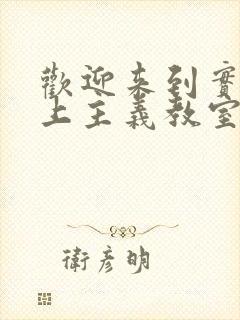 歡迎來到實
上主義教室
衛彥明